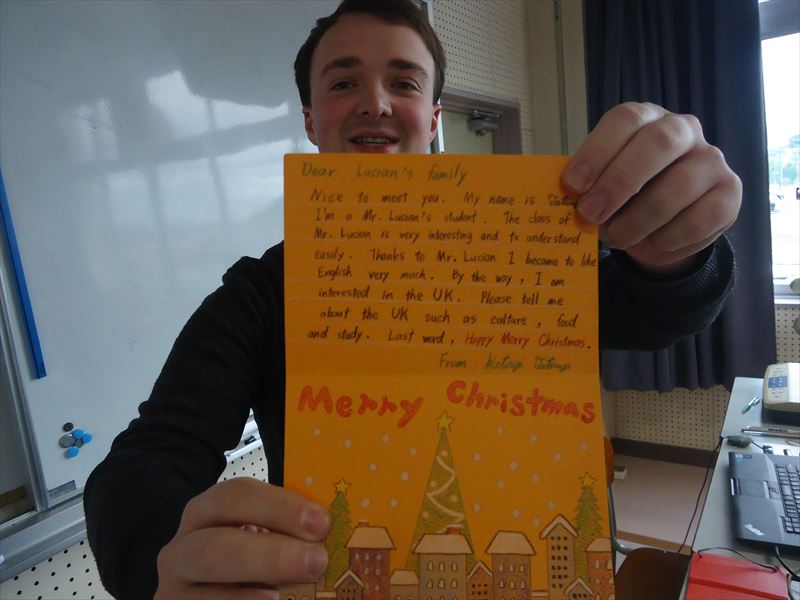 Dear Lucian's family
Nice to meet you. My name is
I'm a Mr. Lucian's student. The class of
Mr. Lucian is very interesting and to understand
easily. Thanks to Mr. Lucian I became to like
English very much. By the way, I am
interested in the UK. Please tell me
about the UK such as culture, food
and study. Last word, Happy Merry Christmas.
From
Merry Christmas